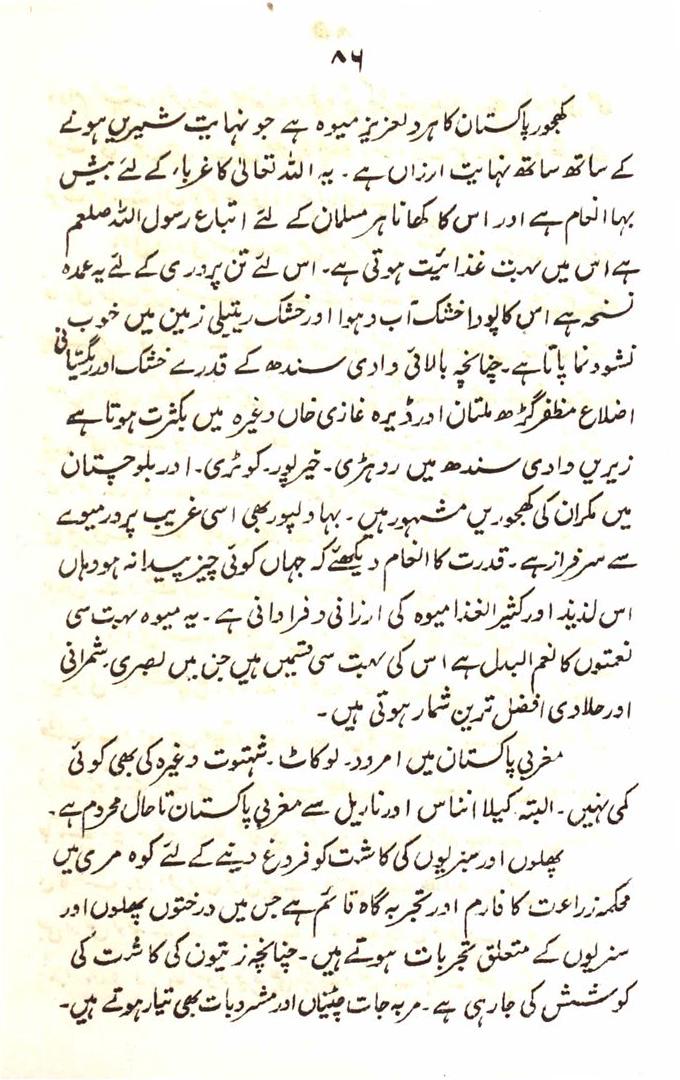 ۸۶
کھجور پاکستان کا ہر دلعزیز میوہ ہے جو نہایت شیریں ہونے
کے ساتھ ساتھ نہایت ارزاں ہے۔ یہ اللہ تعالیٰ کا غرباء کے لئے بیش
بہا انعام ہے اور اس کا کھانا ہر مسلمان کے لئے اتباع رسول اللہ صلعم
ہے اس میں بہت غذائیت ہوتی ہے۔ اس لئے تن پروری کے لئے یہ عمدہ
نسخہ ہے اس کا پودا خشک آب و ہوا اور خشک ریتیلی زمین میں خوب
نشوونما پاتا ہے۔ چنانچہ بالائی وادی سندھ کے قدرے خشک اور ریگستانی
اضلاع مظفر گڑھ ملتان اور ڈیرہ غازی خاں وغیرہ میں بکثرت ہوتا ہے
زیریں وادی سندھ میں روہڑی۔ خیرپور۔ کوٹری۔ اور بلوچستان
میں مکران کی کھجوریں مشہور ہیں۔ بہاولپور بھی اسی غریب پرور میوے
سے سرفراز ہے۔ قدرت کا انعام دیکھئے کہ جہاں کوئی چیز پیدا نہ ہو وہاں
اس لذیذ اور کثیر الغذا میوہ کی ارزانی و فراوانی ہے۔ یہ میوہ بہت سی
نعمتوں کا نعم البدل ہے اس کی بہت سی قسمیں ہیں جن میں بصری۔ شمرانی
اور حلاوی افضل ترین شمار ہوتی ہیں۔
مغربی پاکستان میں امرود۔ لوکاٹ۔ شہتوت وغیرہ کی بھی کوئی
کمی نہیں۔ البتہ کیلا انناس اور ناریل سے مغربی پاکستان تاحال محروم ہے۔
پھلوں اور سبزیوں کی کاشت کو فروغ دینے کے لئے کوہ مری میں
محکمہ زراعت کا فارم اور تجربہ گاہ قائم ہے جس میں درختوں پھلوں اور
سبزیوں کے متعلق تجربات ہوتے ہیں۔ چنانچہ زیتون کی کاشت کی
کوشش کی جا رہی ہے۔ مربہ جات چٹنیاں اور مشروبات بھی تیار ہوتے ہیں۔